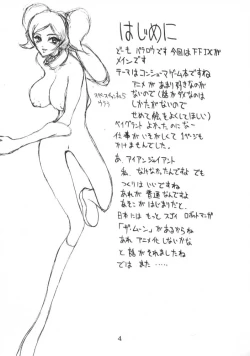 はじめに
どーも パラロウです 今回はFFIXが
メインです
テーマはコンシューマゲーム本ですね
アニメが あまり好きなのが
ないので（話がダメなのは
しかたがないので
せめて絵をよくしてほしい）
ベイグラント よかったのにな〜
仕事がいそがしくて 1ページも
かけませんでした。
あ、アイアンジャイアント
私、なけなかったんですよ でも
つくりは いいですね
あれが 普通なんですよ
あそこが はじまりだと、
日本には もっと スゴイ ロボットマンガ
「ザ・ムーン」が あるからね
あれ アニメ化 しないかな
と 話が それましたね
では また ……
4